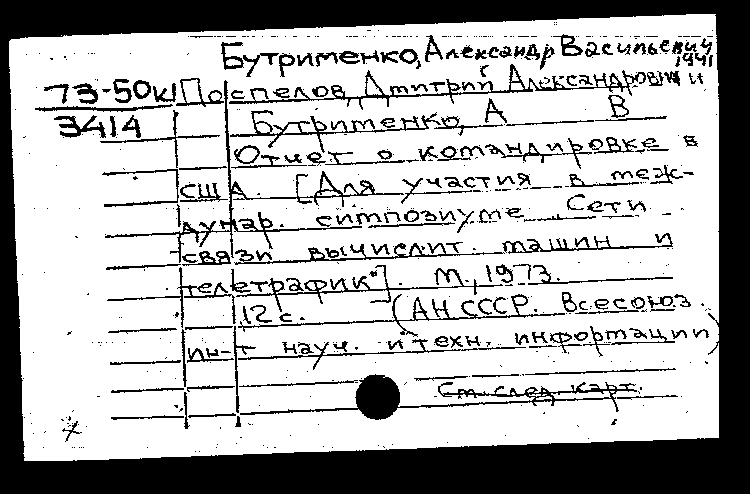 Бутрименко, Александр Васильевич
1941
73-50к Поспелов, Дмитрий Александрович и
3414 Бутрименко, А В
Отчет о командировке в
США. [Для участия в меж-
дунар. симпозиуме „Сети
связи вычислит. машин и
телетрафик"]. М., 1973.
12 с. (АН СССР. Всесоюз.
ин-т науч. и техн. информации)
См. след. карт.